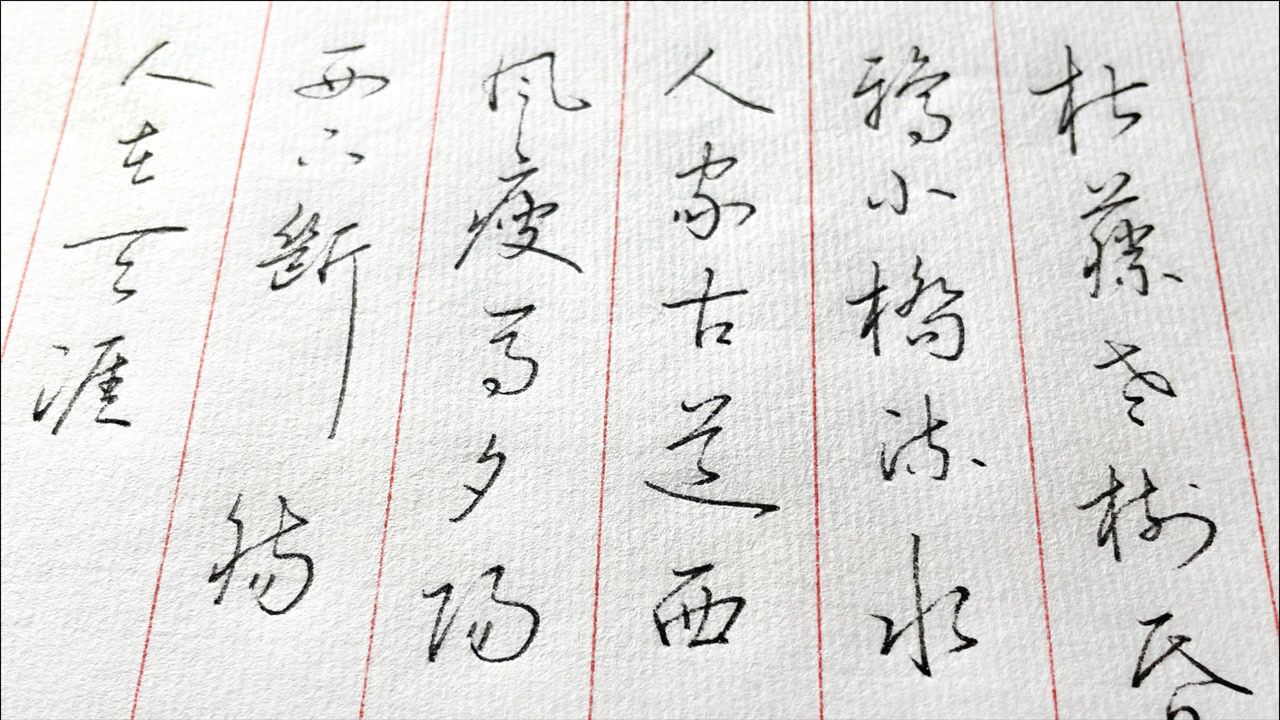 枯藤老樹昏
鴉小橋流水
人家古道西
風瘦馬夕陽
西下斷腸
人在天涯